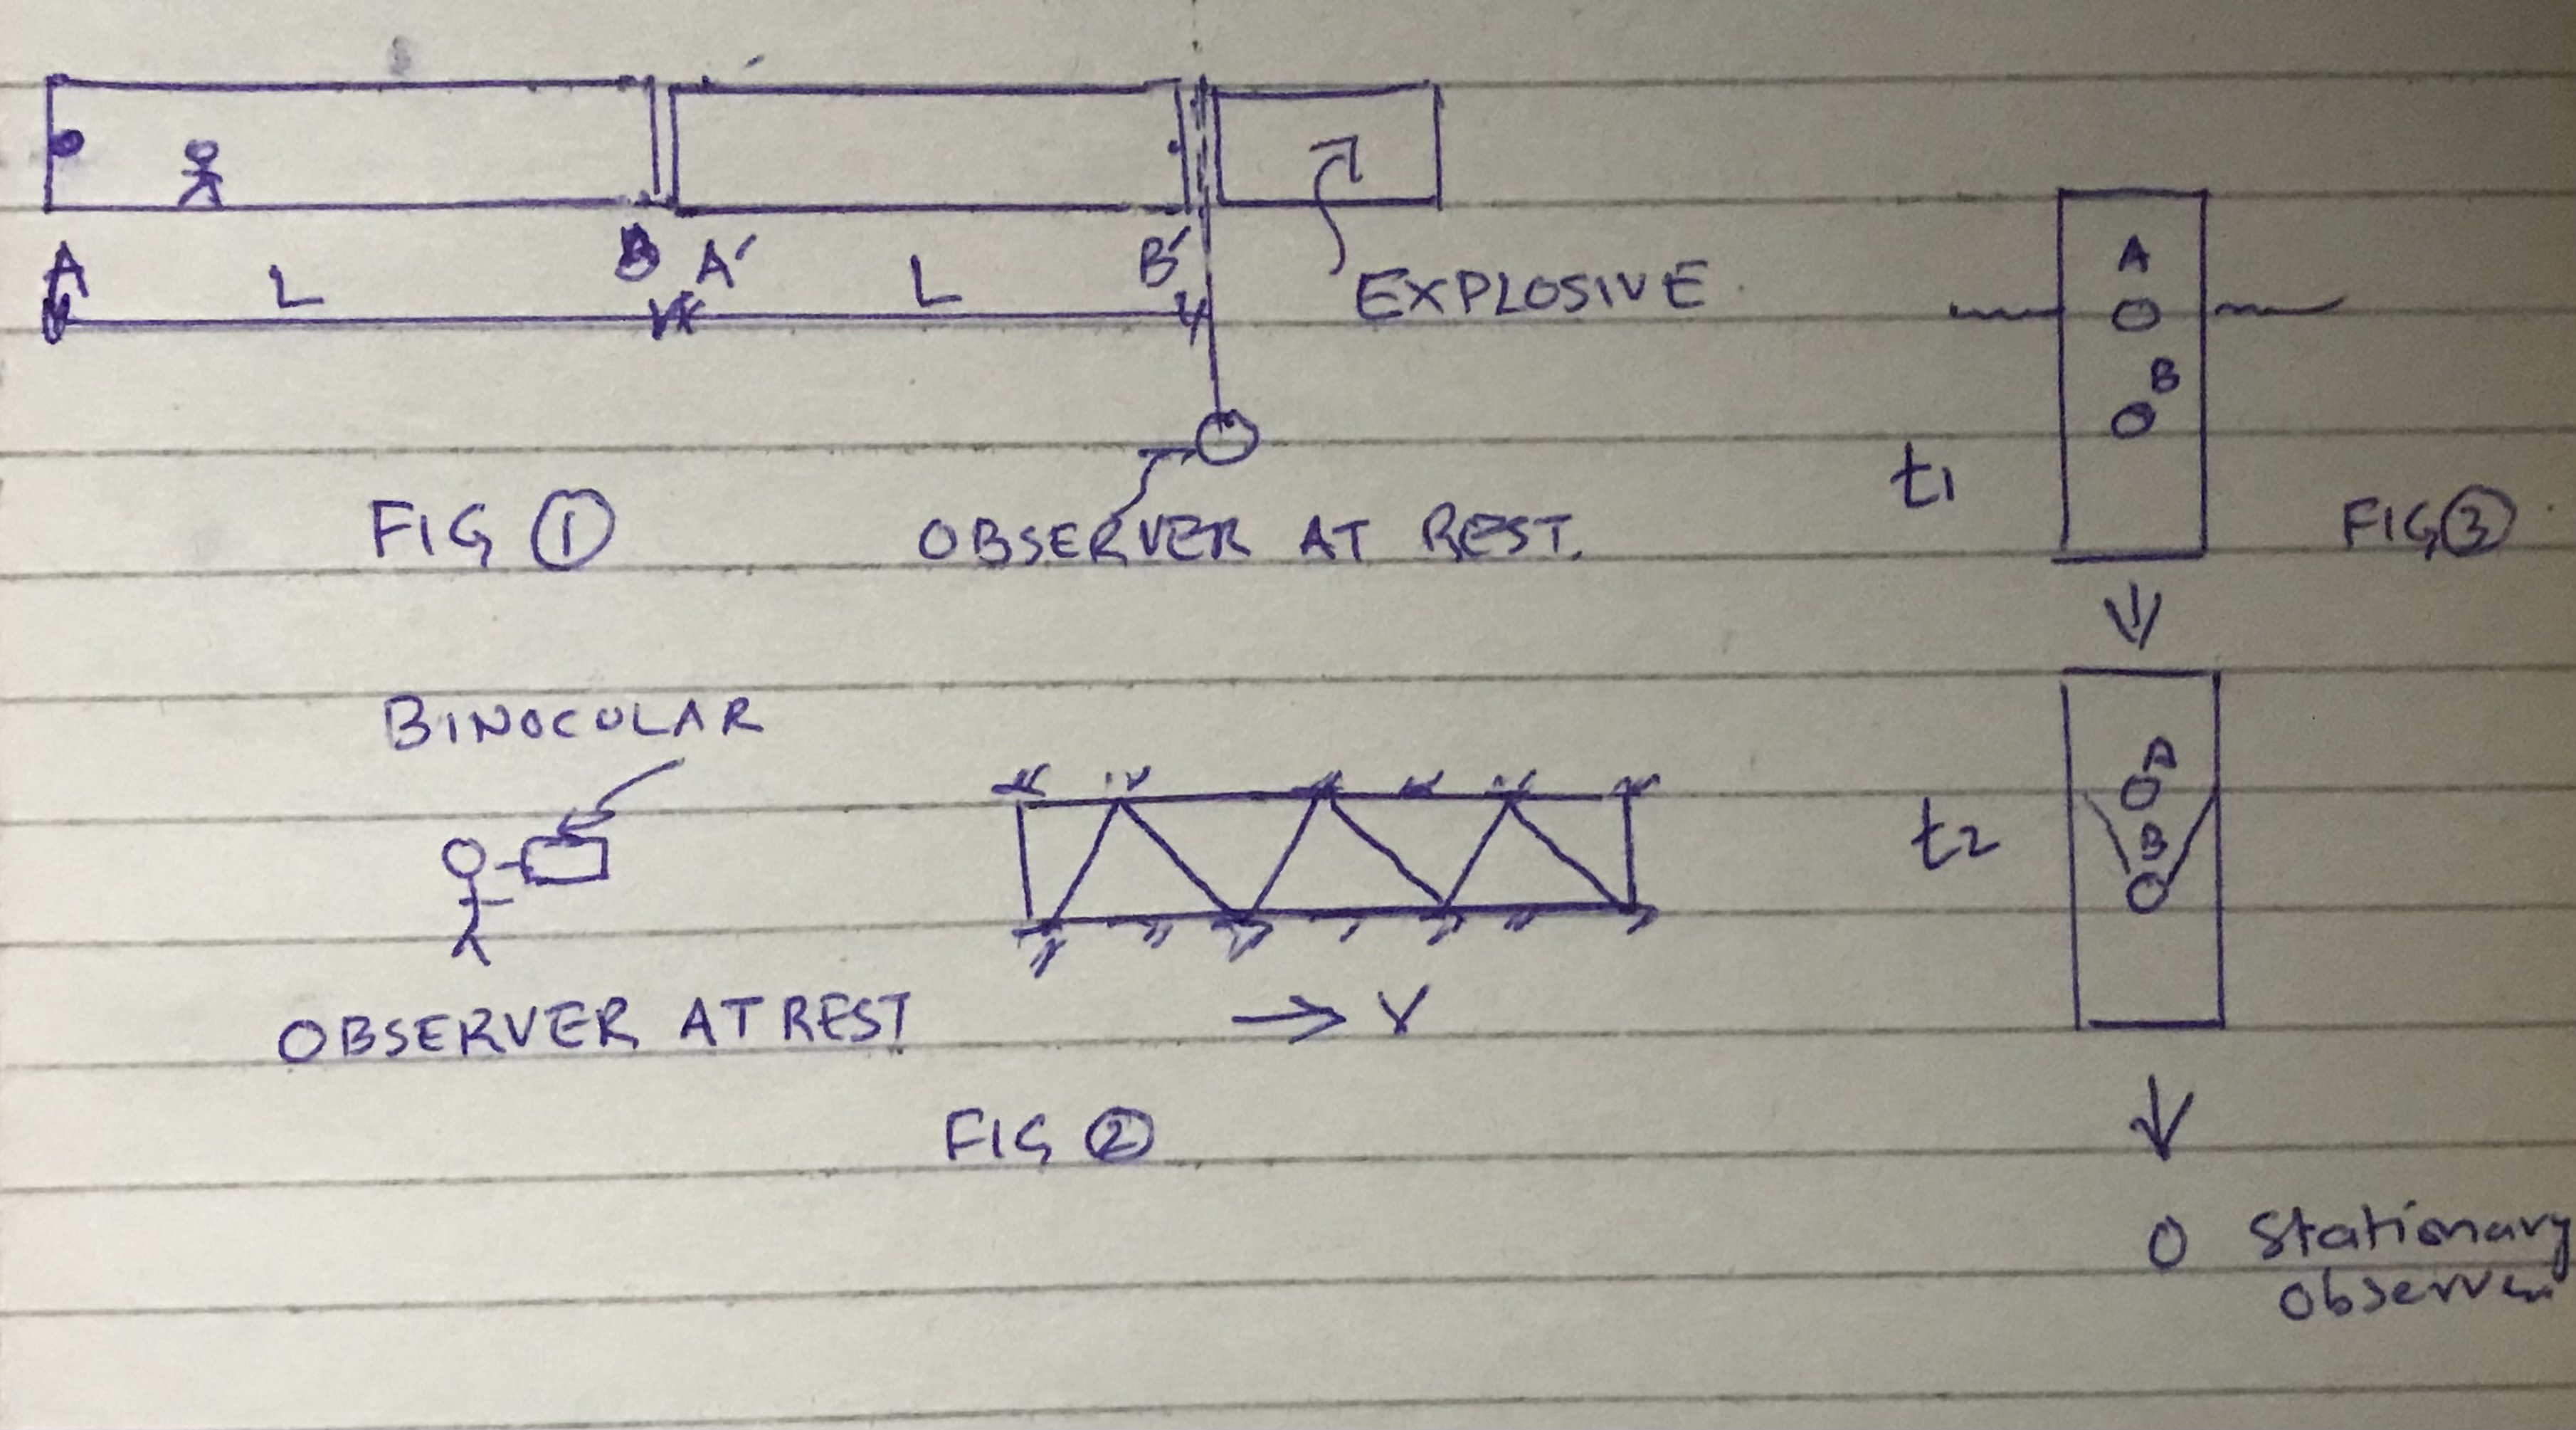 A B A' B'
L L
EXPLOSIVE
FIG ①
OBSERVER AT REST.
A
B
t1
FIG ③
BINOCULAR
OBSERVER AT REST
→ V
FIG ②
A
B
t2
O Stationary
Observer